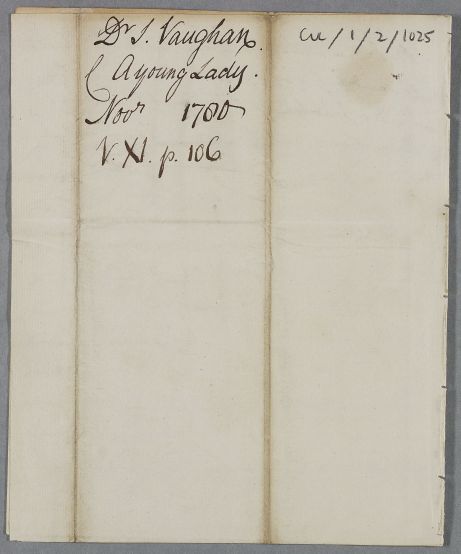 Dr J. Vaughan.
A young Lady.
Novr 1780
V. XI. p. 106
Cul/1/2/1025